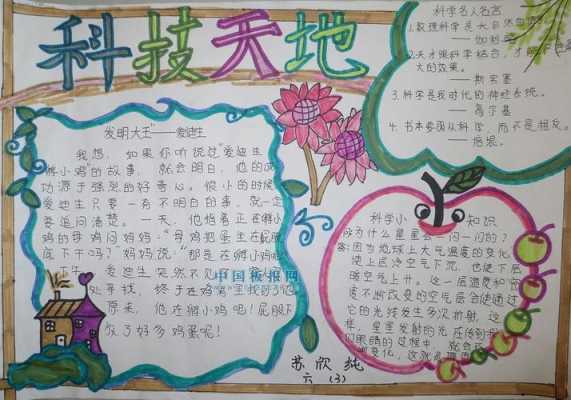 科技天地
发明大王"——爱迪生
我想,如果你听说过"爱迪生
孵小鸡"的故事,就会明白,他的成
功源于强烈的好奇心。很小的时候
爱迪生只要一有不明白的事,就一定
要追问清楚。一天,他指着正在孵小
鸡的母鸡问妈妈:"母鸡把蛋坐在屁股
底下干吗?"妈妈说:"那是在孵小鸡呢
下午,爱迪生突然不见了,
处寻找,终于在鸡窝里找到了他
原来,他在孵小鸡呢!屁股下
放了好多鸡蛋呢!
中国板报网
科学名人名言
1.数理科学是大自然
——伽利略
2.天才跟科学结合,才能
大的效果。
——斯宾塞
3.科学是我时代的神经系统。
——高尔基
4.书本要顺从科学,而不是相反。
——培根。
科学小知识
为什么星星会一闪一闪的?
答:因为地球上大气温度的变化,
使上层冷空气下沉,也使下层
暖空气上升。这一层温度和密
度不断改变的空气层会使通过
它的光线发生多次折射,这
样,星星发射的光在传到我
们眼睛的过程中,就会
变化,这就
苏欣纯
六(3)